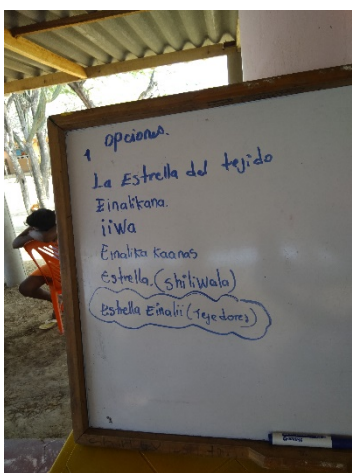 opciones.
1
La Estrella del tejido
Einalikana.
iiwa
Einalika Kaanas
Estrella. (shiliwala)
Estrella Einalii (Tejedores)